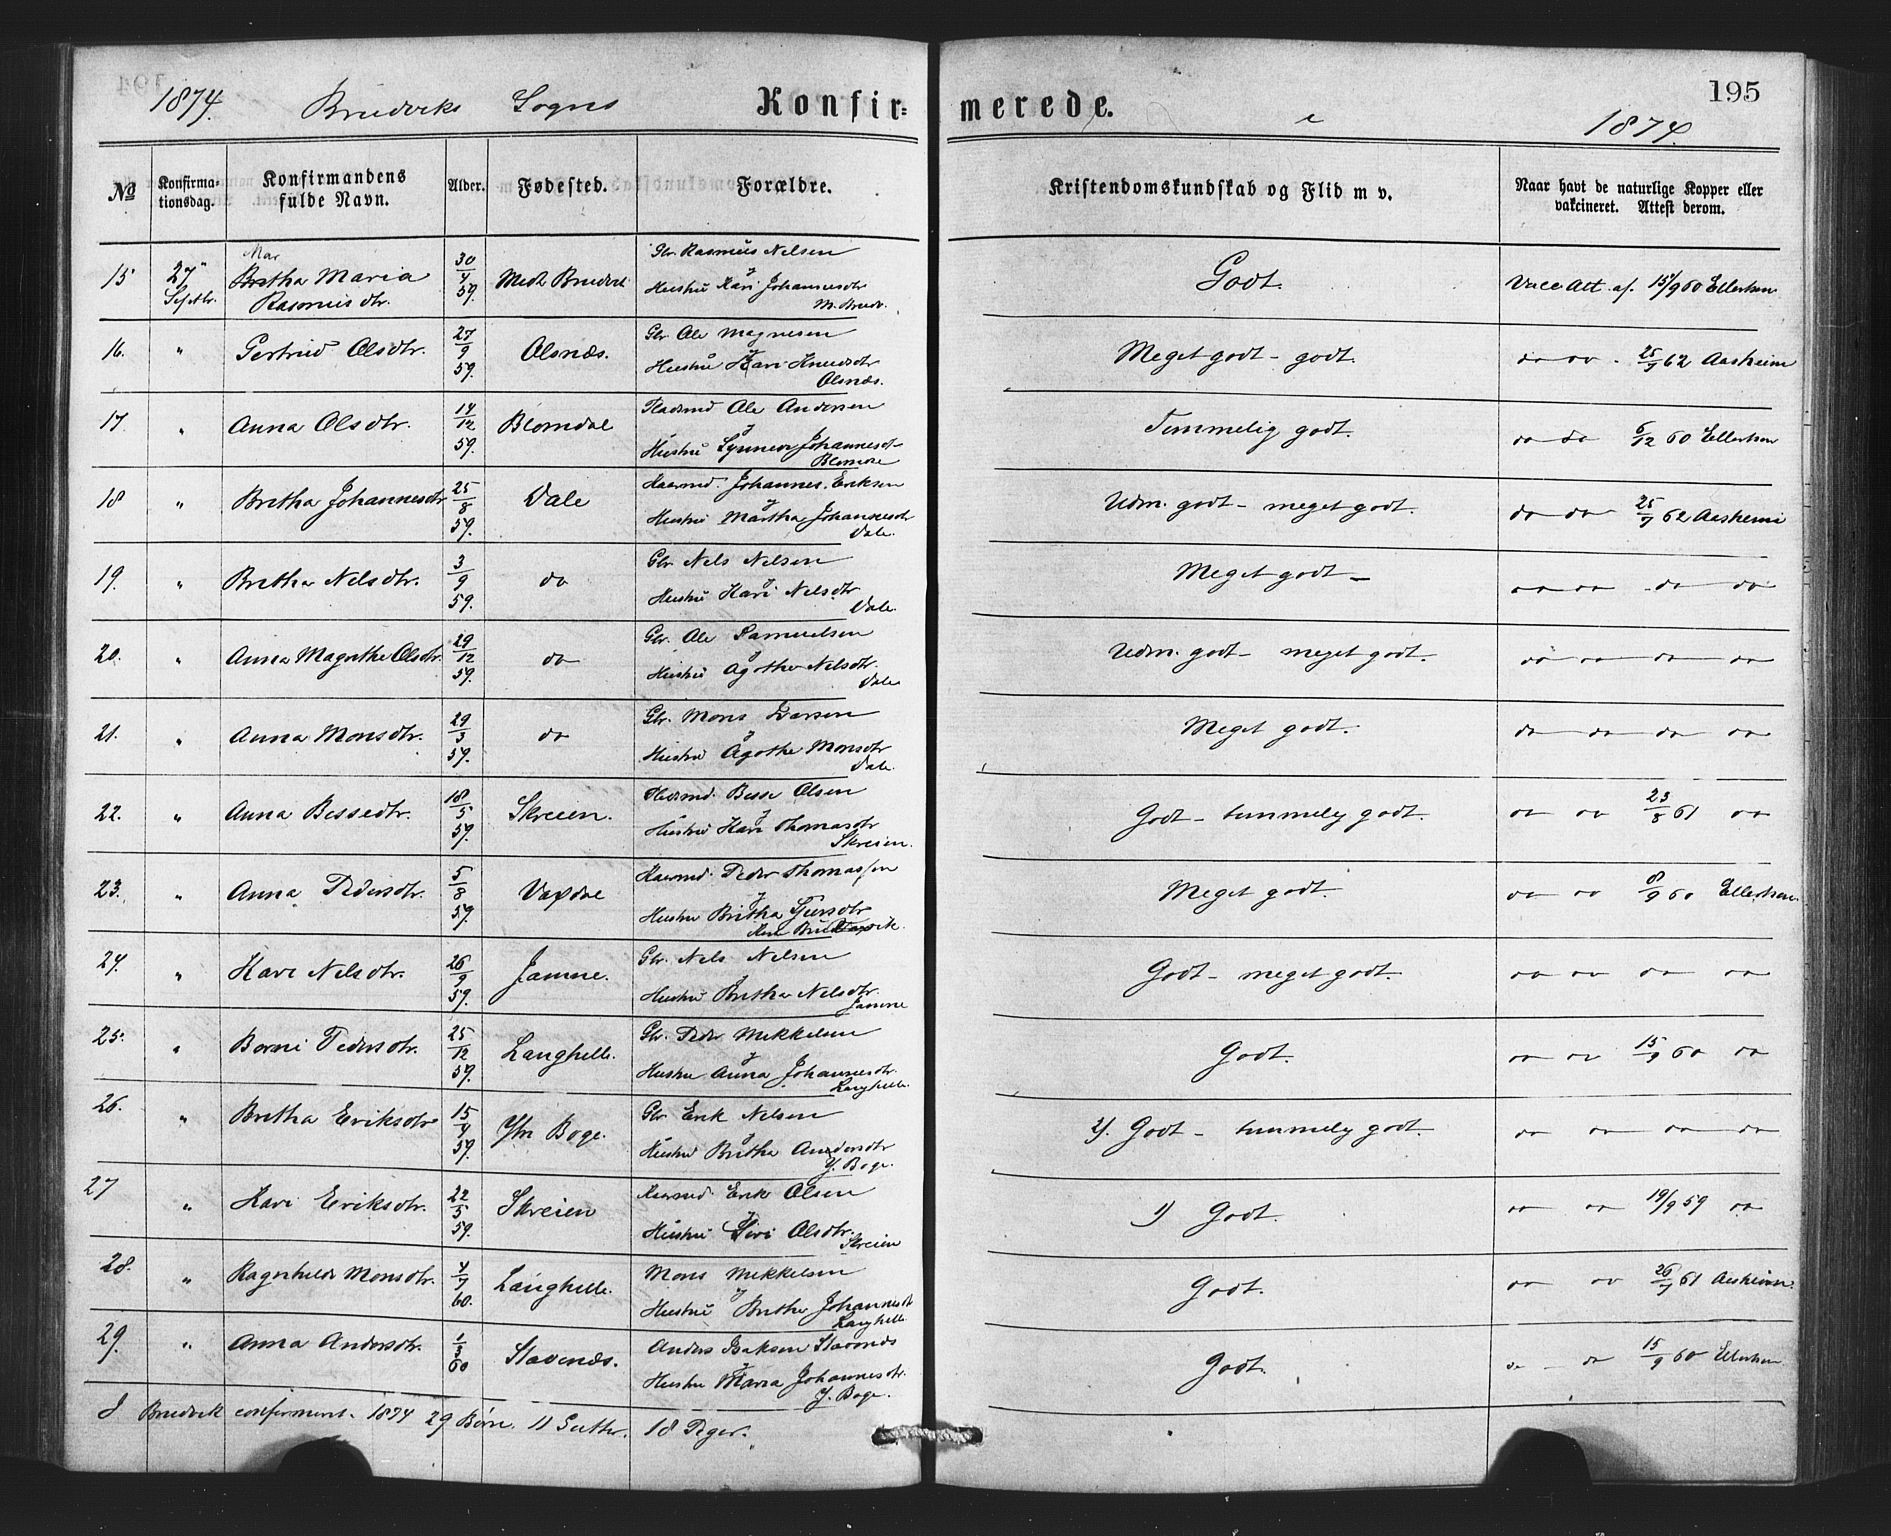 195
1874. Bruviks Sogns Konfir= merede. 1874.
No Konfirma-tionsdag. Konfirmandens fulde Navn. Alder. Fødested. Forældre. Kristendomskundskab og Flid m v. Naar havt de naturlige Kopper eller vakcineret. Attest derom.
15 27" Septbr. Mar Bretha Maria Rasmusdtr. 30/4 59. Gbr. Rasmus Nelsen
Hustru Kari Johannesdtr Godt. Vacc Att. af. 15/9 60 Ellertsen
16. " Gertrud Olsdtr. 27/9 59. Olsnæs. Gbr Ole Magnesen
Hustru Kari Knudsdtr Olsnæs. Meget godt - godt. do do - 25/7 62 Aasheim
17. " Anna Olsdtr. 14/12 59. Blomdal Pladsmd Ole Andersen
Hustru Synneva Johannesdtr Temmelig godt. do do 6/12 60 Ellertsen
18 " Bretha Johannesdtr 25/8 59. Dale Huusmd. Johannes Eriksen
Hustru Martha Johannesdtr Dale. Udm. godt - meget godt. do do 25/7 62 Aasheim
19. " Bretha Nelsdtr. 3/9 59. do Gbr. Nels Nelsen
Hustru Kari Nelsdtr Dale. Meget godt - do do do do
20. " Anna Magrethe Olsdtr. 29/12 59. do Gbr. Ole Samuelsen
Hustru Agothe Nelsdtr. Dale Udm. godt - meget godt. do do do do
21. " Anna Monsdtr. 29/3 59. do Gbr. Mons Larsen
Hustru Agothe Monsdtr Dale. Meget godt. do do do do
22. " Anna Bessedtr. 18/5 59. Skreien. Pladsmd. Besse Olsen
Hustru Kari Thomasdtr Skreien. Godt - temmelig godt. do do 23/8 61 do
23. " Anna Pedersdtr. 5/8 59. Vaxdal Huusmd. Peder Thomassen
Hustru Britha Meget godt. do do 8/9 60 Ellertsen
24. " Kari Nelsdtr. 26/9 59. Jamne. Gbr. Nels Nelsen
Hustru Bretha Nelsdtr. Jamne Godt - meget godt. do do do do
25. " Borni Pedersdtr. 25/12 59. Langhelle. Gbr. Peder Mikkelsen
Hustru Anna Johannesdtr. Langhelle. Godt. do do 15/9 60 do
26. " Bretha Eriksdtr 15/4 59. Ytr. Boge. Gbr Erik Nelsen
Hustru Britha Andersdtr Y. Boge. 2). Godt - temmelig godt. do do do do
27 " Kari Eriksdtr. 22/5 59. Skreien Huusmd. Erik Olsen
Hustru Siri Olsdtr. Skreien 1) Godt. do do 19/9 59 do
28. " Ragnhilde Monsdtr. 4/7 60. Langhelle. Mons Mikkelsen
Hustru Bretha Johannesdt Langhelle Godt. do do 26/7 61 Aasheim
29. " Anna Andersdtr. 1/3 60 Stavenæs. Anders Isaksen Stavenæs
Hustru Maria Johannesdtr. Y. Boge. Godt. do - do 15/9 60 Ellertsen
I Bruvik confirmert. 1874 29 Børn. 11 Gutter. 18 Piger.